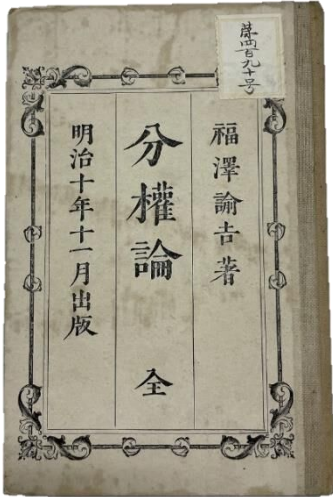 第四百九十号
福澤諭吉著
分權論 全
明治十年十一月出版